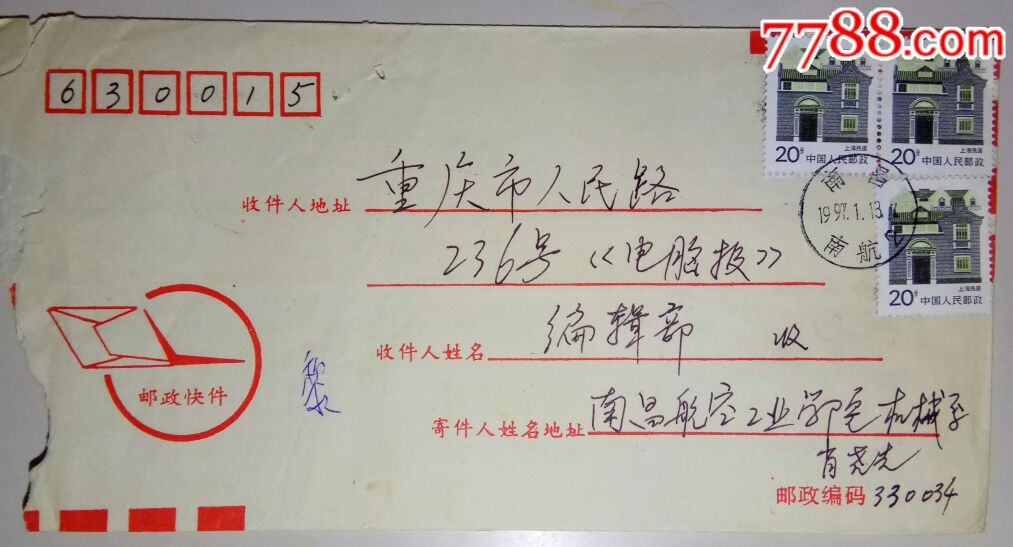 7788.com
630015
20分 中国人民邮政
上海民居
20分 中国人民邮政
上海民居
南昌
1997.1.13
南航
20分 中国人民邮政
上海民居
收件人地址 重庆市人民路
236号《电脑报》
收件人姓名 编辑部 收
邮政快件
寄件人姓名地址 南昌航空工业学院机械系
肖尧先
邮政编码 330034